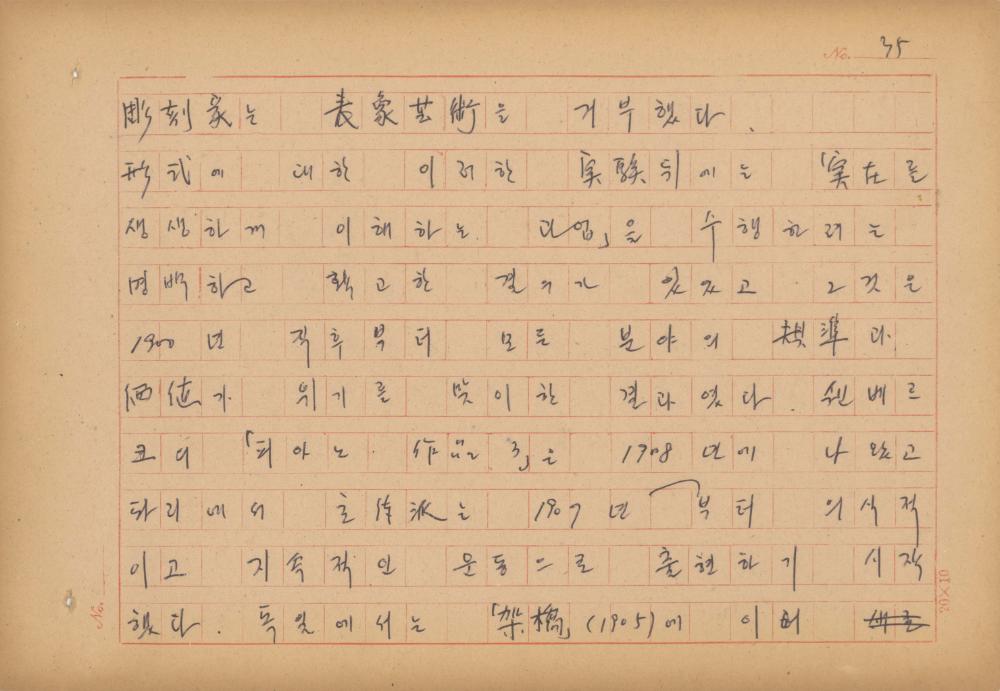 No. 35
彫刻家는 表象芸術을 거부했다.
形式에 대한 이러한 実験뒤에는 「実在를
생생하게 이해하는 과업」을 수행하려는
명백하고 확고한 결의가 있었고 그것은
1900년 직후부터 모든 분야의 規準과
価値가 위기를 맞이한 결과였다. 쇤베르
크의 「피아노 作品 3」은 1908년에 나왔고
파리에서 立体派는 1907년부터 의식적
이고 지속적인 운동으로 출현하기 시작
했다. 독일에서는 「架橋」(1905)에 이어
No.
20×10